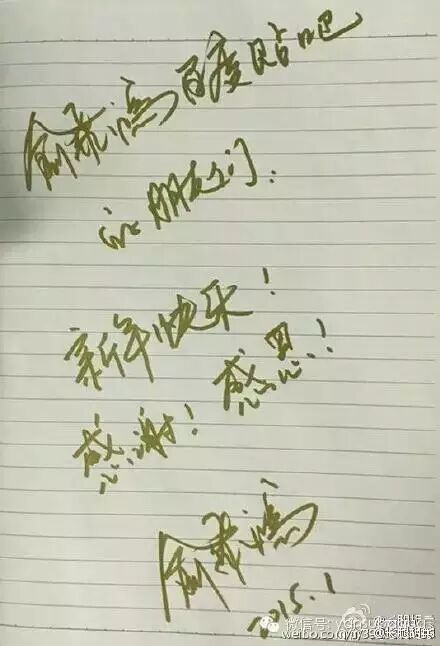 俞承鸿百度贴吧
的朋友们:
新年快乐!
感谢! 感恩!
2015.1
微信号:
weibo.com/